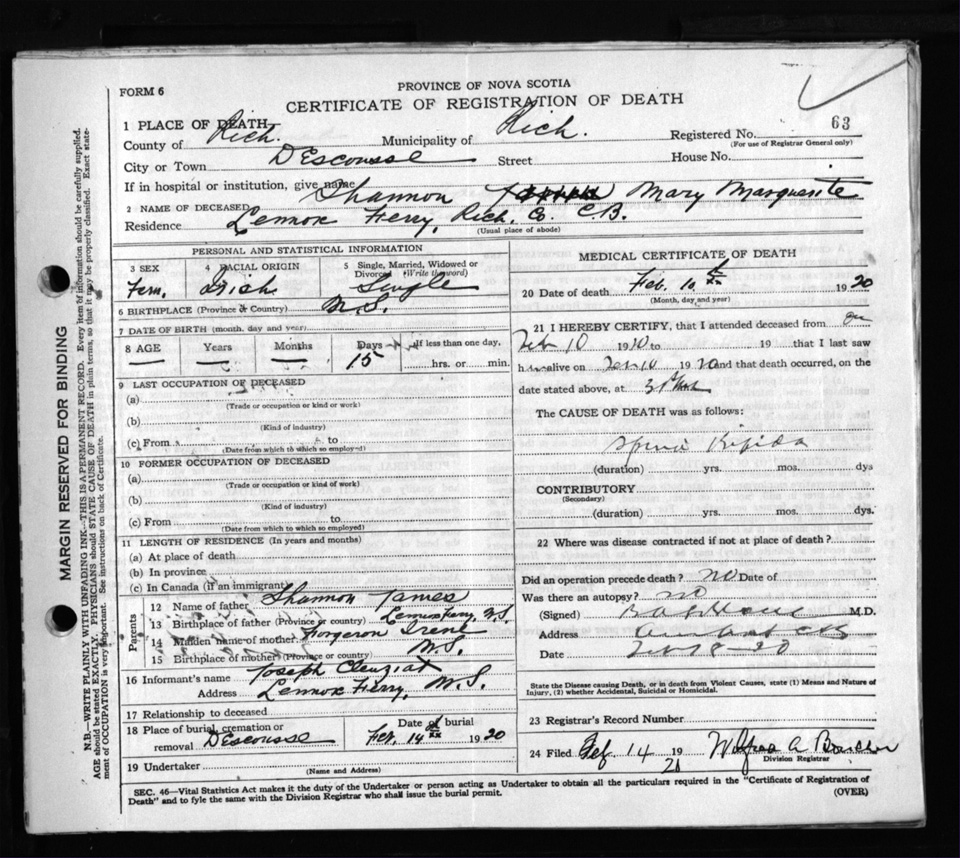 FORM 6
PROVINCE OF NOVA SCOTIA
CERTIFICATE OF REGISTRATION OF DEATH
1 PLACE OF DEATH—
County of Rich. Municipality of Rich. Registered No. 63
(For use of Registrar General only)
City or Town D'Escousse Street House No.
If in hospital or institution, give name
2 NAME OF DECEASED Shannon Mary Marguerite
Residence Lennox Ferry, Rich. Co. C.B.
(Usual place of abode)
PERSONAL AND STATISTICAL INFORMATION
3 SEX
Fem.
4 RACIAL ORIGIN
Irish
5 Single, Married, Widowed or Divorced (Write the word)
Single
6 BIRTHPLACE (Province or Country) N.S.
7 DATE OF BIRTH (month, day and year)
8 AGE Years Months Days If less than one day,
— — 15 hrs. or min.
9 LAST OCCUPATION OF DECEASED
(a)
(Trade or occupation or kind or work)
(b)
(Kind of industry)
(c) From to
(Date from which to which so employed)
10 FORMER OCCUPATION OF DECEASED
(a)
(Trade or occupation or kind of work)
(b)
(Kind of industry)
(c) From to
(Date from which to which so employed)
11 LENGTH OF RESIDENCE (In years and months)
(a) At place of death
(b) In province
(c) In Canada (if an immigrant)
Parents
12 Name of father Shannon James
13 Birthplace of father (Province or country) N.S.
14 Maiden name of mother Forgeron Irene
15 Birthplace of mother (Province or country) N.S.
16 Informant's name Joseph
Address Lennox Ferry, N.S.
17 Relationship to deceased
18 Place of burial, cremation or removal D'Escousse
Date of burial
Feb. 14 1920
19 Undertaker
(Name and Address)
MEDICAL CERTIFICATE OF DEATH
20 Date of death Feb. 10 1920
(Month, day and year)
21 I HEREBY CERTIFY, that I attended deceased from on
Feb 10 1920 to 19 that I last saw
h alive on Feb 10 1920 and that death occurred, on
date stated above, at
The CAUSE OF DEATH was as follows:
Spina Bifida
(duration) yrs. mos. dys
CONTRIBUTORY
(Secondary)
(duration) yrs. mos. dys.
22 Where was disease contracted if not at place of death?
Did an operation precede death? no Date of
Was there an autopsy? no
(Signed) M.D.
Address
Date
State the Disease causing Death, or in death from Violent Causes, state (1) Means and Nature of Injury, (2) whether Accidental, Suicidal or Homicidal.
23 Registrar's Record Number
24 Filed Feb. 14 19
Division Registrar
SEC. 46—Vital Statistics Act makes it the duty of the Undertaker or person acting as Undertaker to obtain all the particulars required in the "Certificate of Registration of
Death" and to fyle the same with the Division Registrar who shall issue the burial permit.
(OVER)
MARGIN RESERVED FOR BINDING
N.B.—WRITE PLAINLY WITH UNFADING INK—THIS IS A PERMANENT RECORD. Every item of information should be carefully supplied.
AGE should be stated EXACTLY. PHYSICIANS should STATE CAUSE OF DEATH in plain terms, so that it may be properly classified. Exact statement of OCCUPATION is very important. See instructions on back of Certificate.